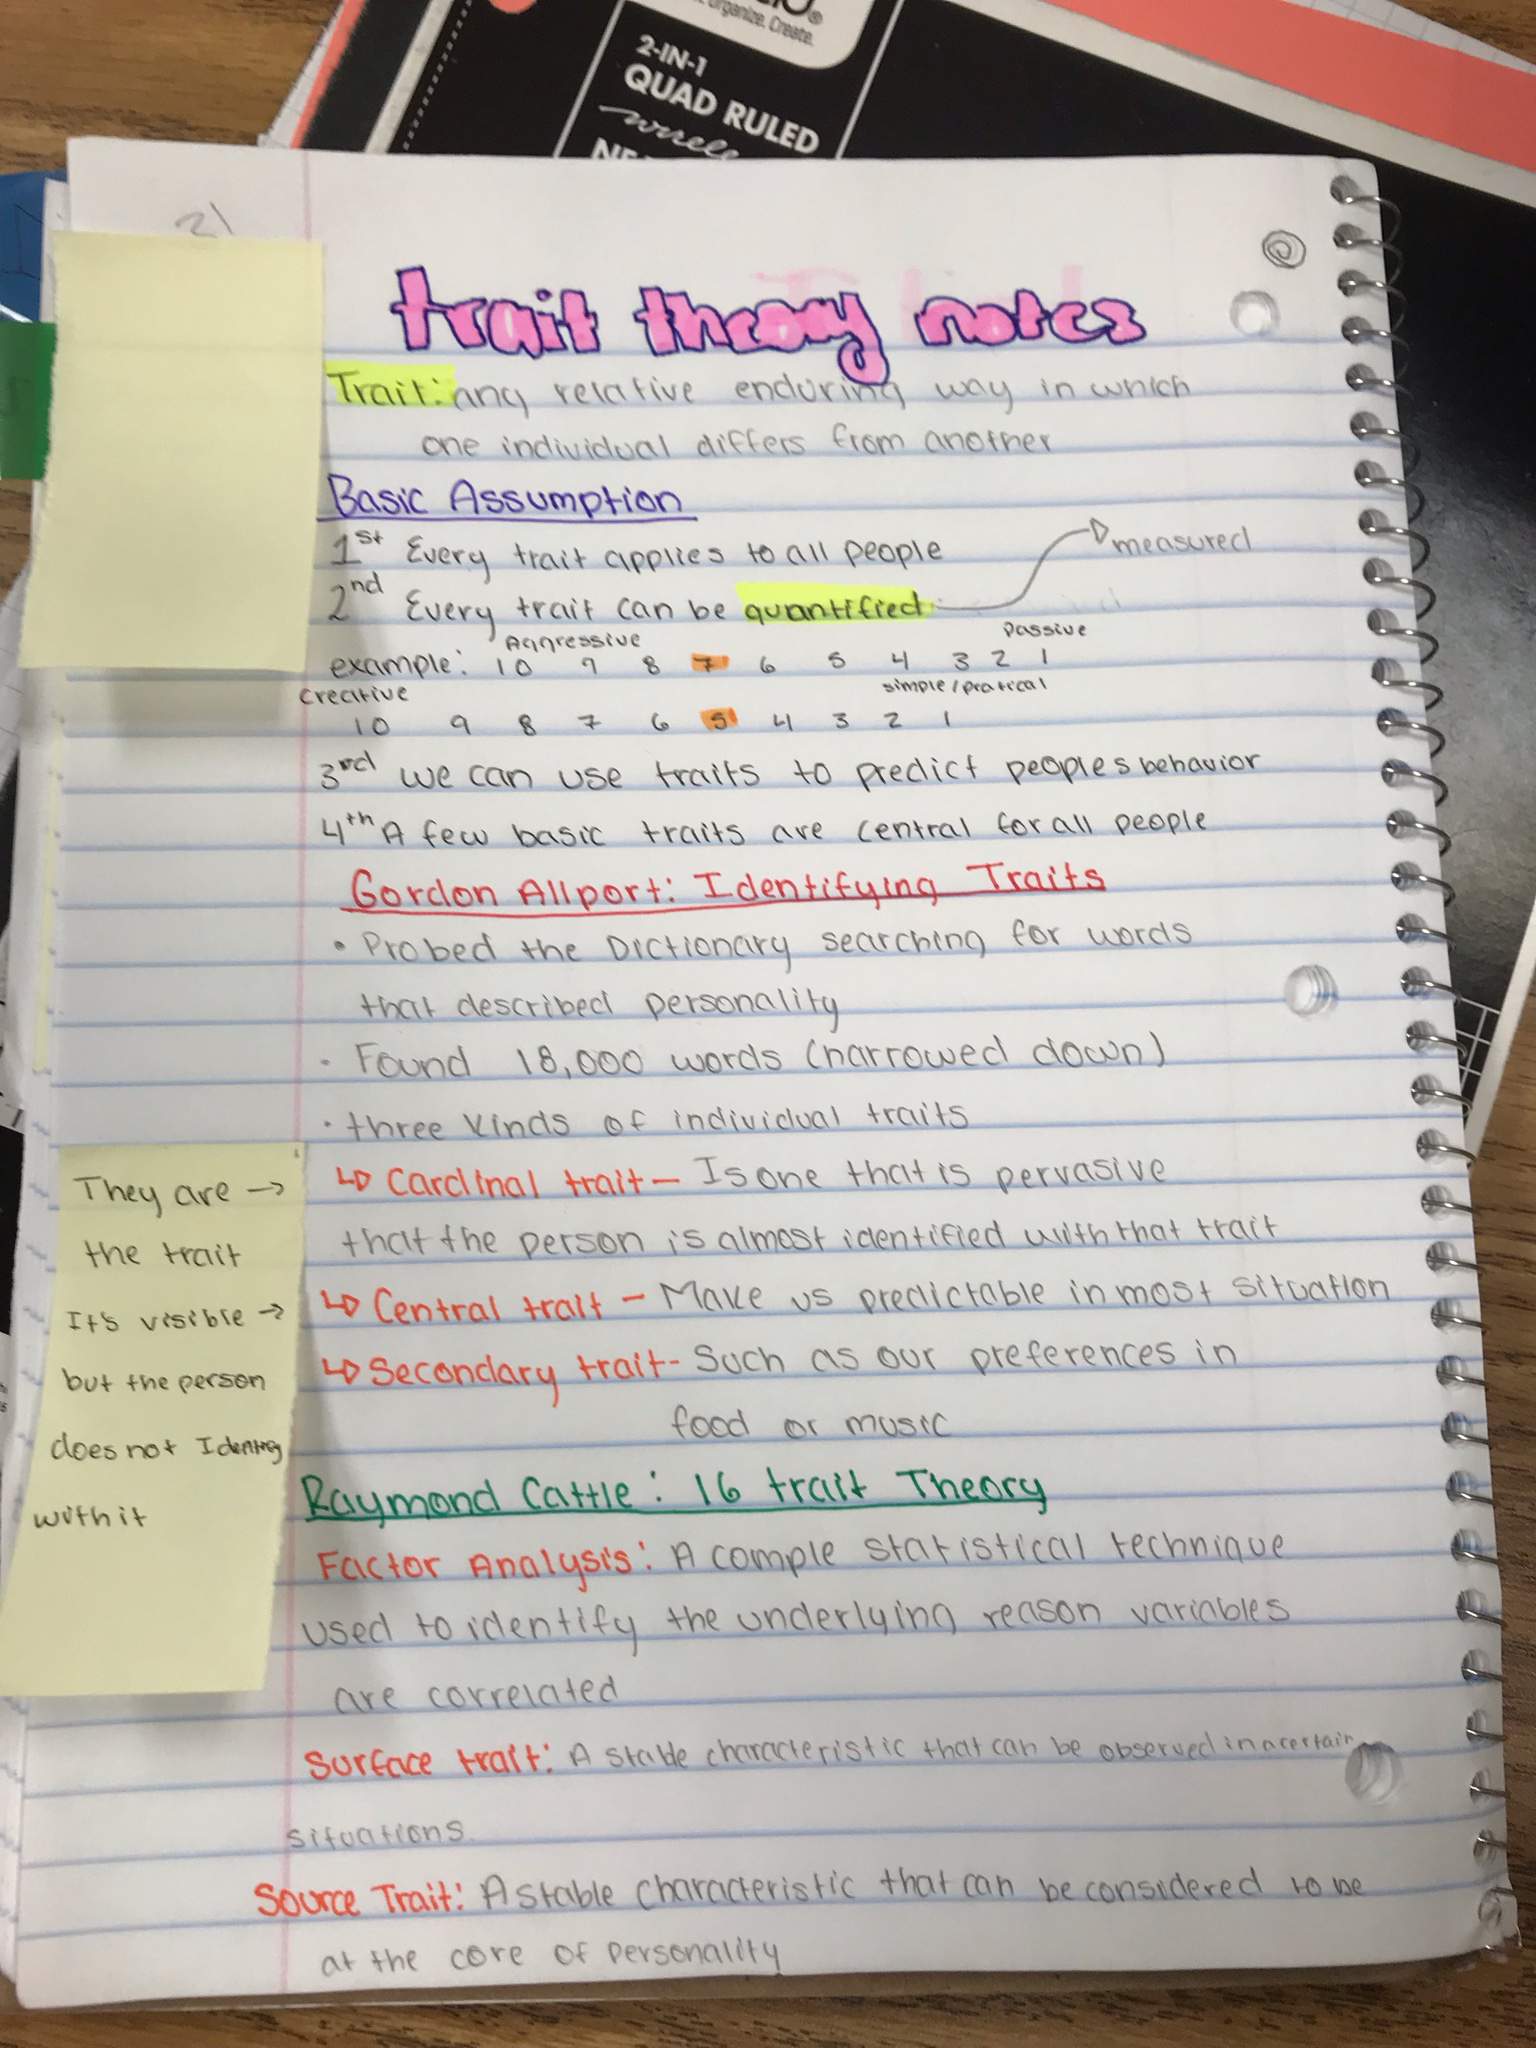 Organize. Create.
2-IN-1
QUAD RULED
21
trait theory notes
Trait: any relative enduring way in which
one individual differs from another
Basic Assumption
1st Every trait applies to all people
measured
2nd Every trait can be quantified
Aggressive passive
example: 10 9 8 7 6 5 4 3 2 1
creative simple/pratical
10 9 8 7 6 5 4 3 2 1
3rd we can use traits to predict peoples behavior
4th A few basic traits are central for all people
Gordon Allport: Identifying Traits
• Probed the Dictionary searching for words
that described personality
• Found 18,000 words (narrowed down)
• three kinds of individual traits
They are →
the trait
It's visible →
but the person
does not Identify
with it
↳ Cardinal trait - Is one that is pervasive
that the person is almost identified with that trait
↳ Central trait - Make us predictable in most situation
↳ Secondary trait - Such as our preferences in
food or music
Raymond Cattle: 16 trait Theory
Factor Analysis: A comple statistical technique
used to identify the underlying reason variables
are correlated
Surface trait: A stable characteristic that can be observed in a certain
situations.
Source Trait: A stable characteristic that can be considered to be
at the core of personality